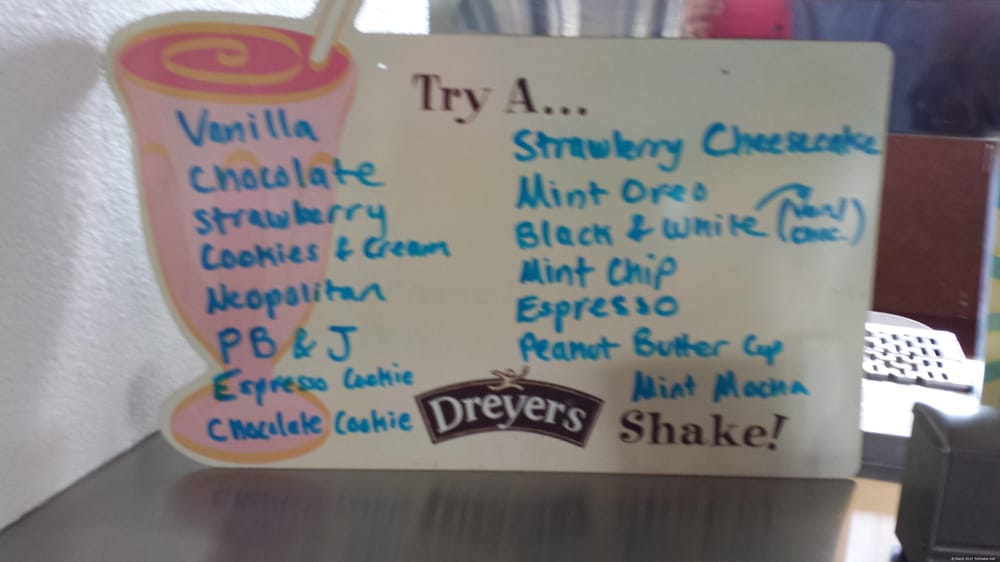 Try A...
Vanilla
Chocolate
Strawberry
Cookies & Cream
Neopolitan
PB & J
Espresso Cookie
Chocolate Cookie
Strawberry Cheesecake
Mint Oreo
Black & White (Van/
Choc)
Mint Chip
Espresso
Peanut Butter Cup
Mint Mocha
Dreyer's
Shake!